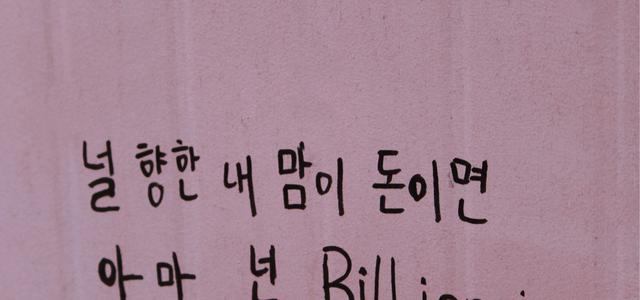 널 향한 내 맘이 돈이면
아마 넌